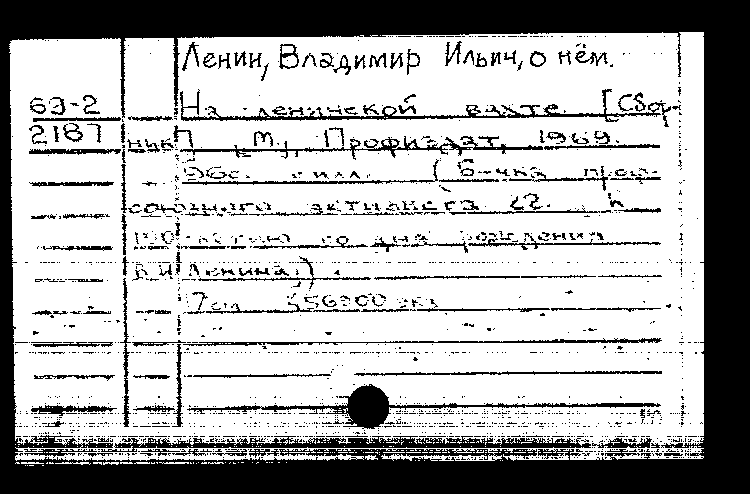 Ленин, Владимир Ильич, о нём.
69-2 На ленинской вахте. [Сбор-
2187 ник], М., Профиздат, 1969.
96с. с илл. (Б-чка проф-
союзного активиста 22. К
100-летию со дня рождения
В.И. Ленина.).
17см 556900 экз